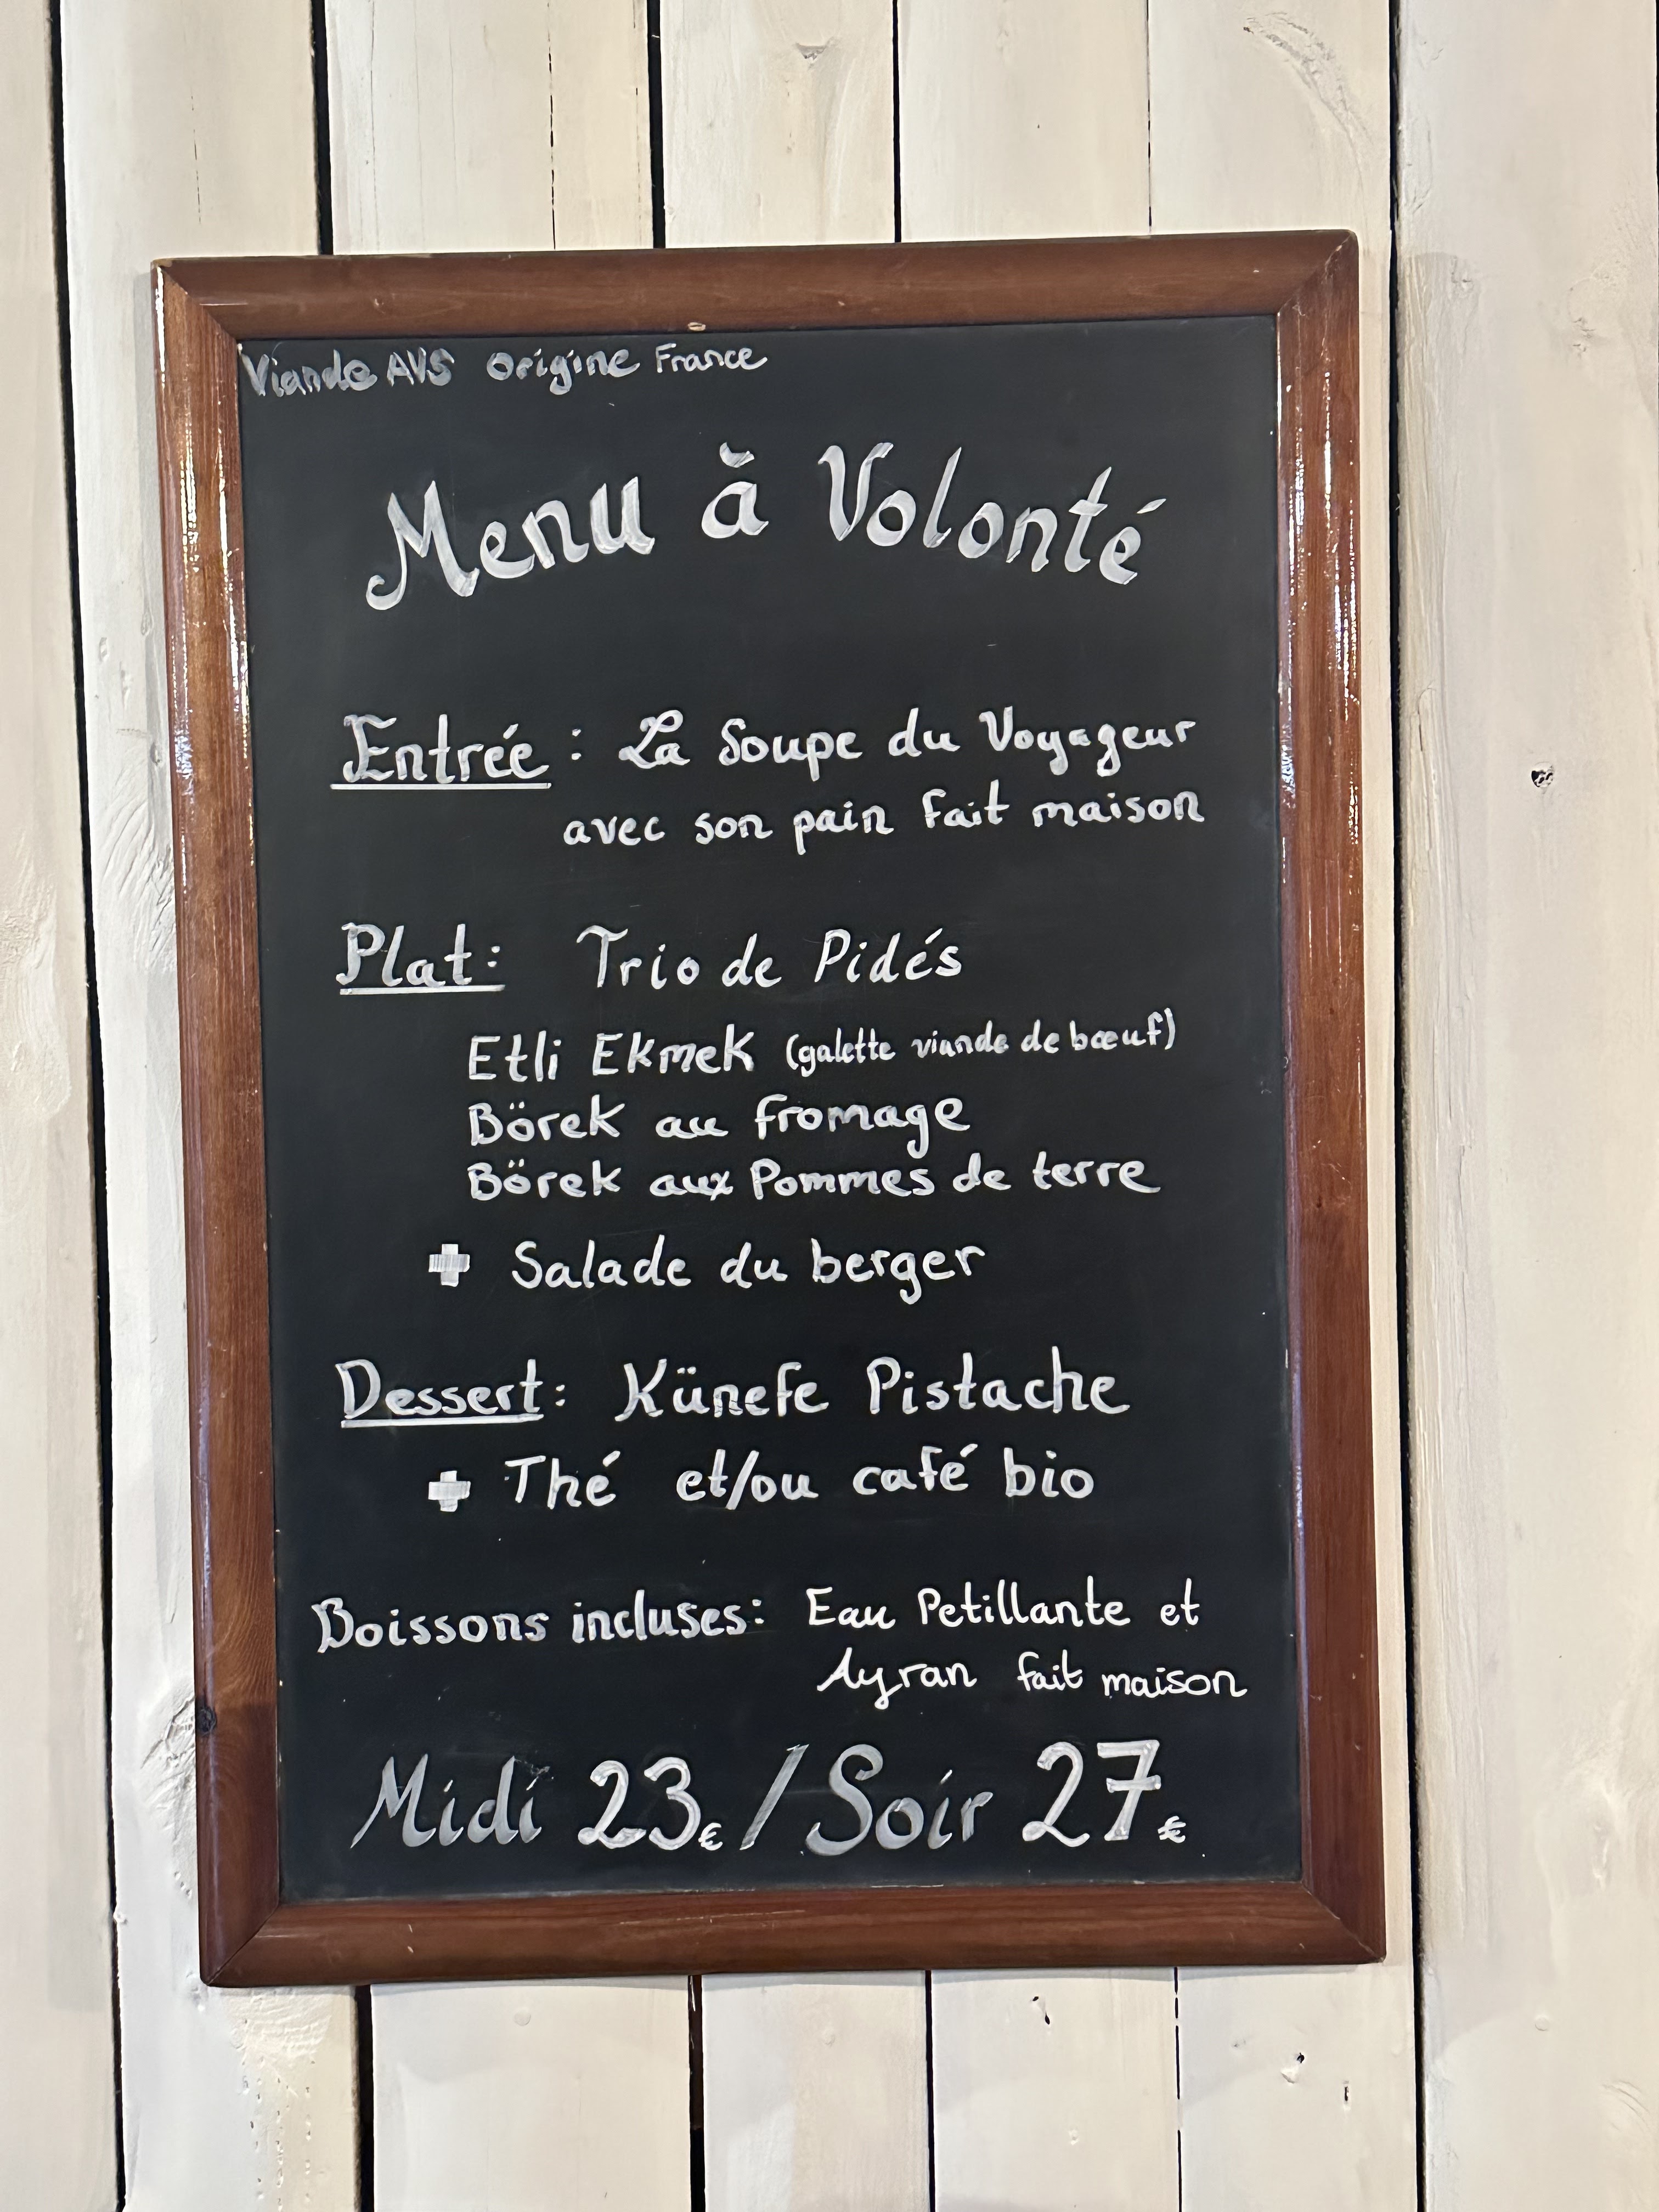 Viande AVS Origine France
Menu à Volonté
Entrée : La Soupe du Voyageur
avec son pain fait maison
Plat : Trio de Pidés
Etli Ekmek (galette viande de bœuf)
Börek au fromage
Börek aux Pommes de terre
+ Salade du berger
Dessert : Künefe Pistache
+ Thé et/ou café bio
Boissons incluses : Eau Petillante et
Ayran fait maison
Midi 23€ / Soir 27€